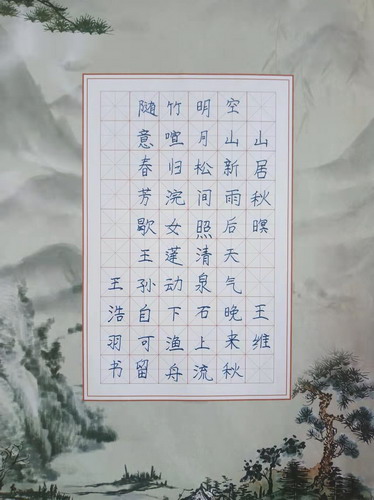 山居秋暝 王维
空山新雨后天气晚来秋
明月松间照清泉石上流
竹喧归浣女莲动下渔舟
随意春芳歇王孙自可留
王浩羽书